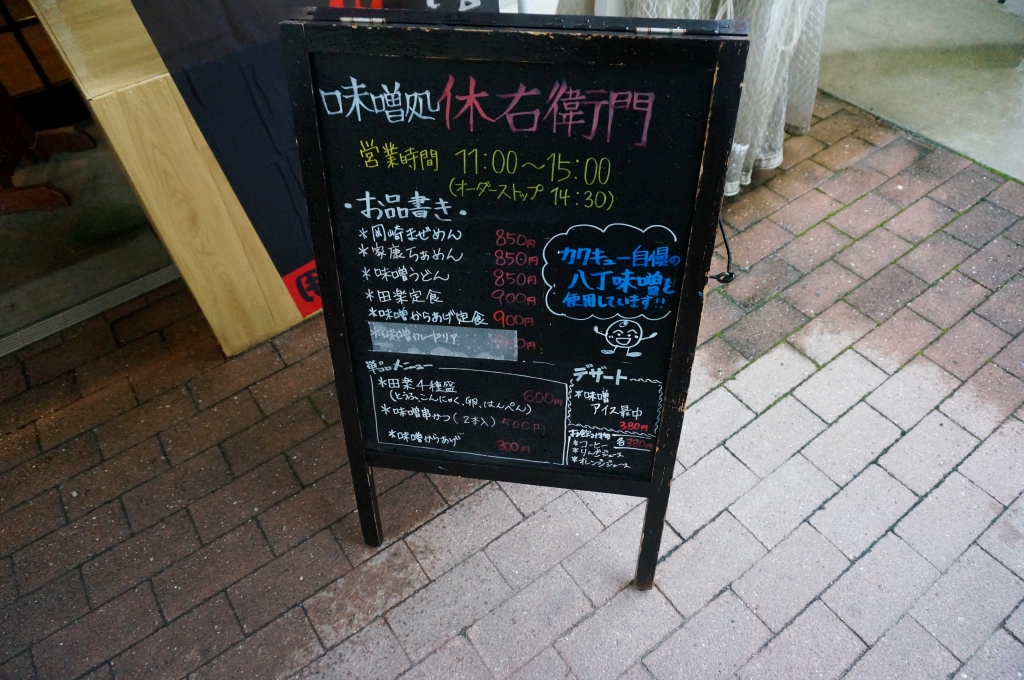 味噌処 休右衛門
営業時間 11:00〜15:00
(オーダーストップ 14:30)
・お品書き・
*岡崎まぜめん 850円
*家康らぁめん 850円
*味噌うどん 850円
*田楽定食 900円
*味噌からあげ定食 900円
*味噌カレードリア
カクキュー自慢の
八丁味噌を
使用しています!!
単品メニュー
*田楽4種盛 600円
(とうふ、こんにゃく、卵、はんぺん)
*味噌串かつ(2本入) 500円
*味噌からあげ 300円
デザート
*味噌
アイス最中
380円
お飲み物 各
*コーヒー
*りんごジュース
*オレンジジュース